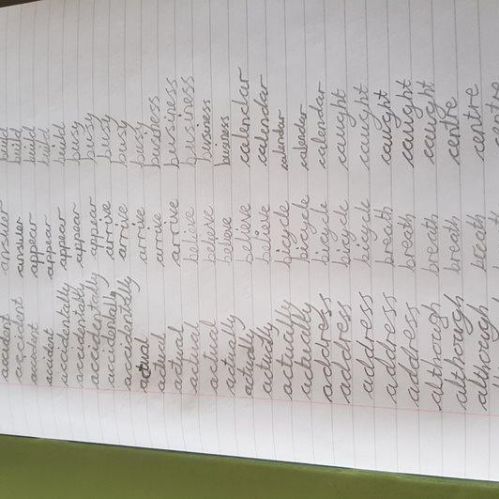 accident answer build
accident answer build
accident appear build
accident appear build
accidentally appear build
accidentally appear busy
accidentally appear busy
accidentally arrive busy
accidentally arrive busy
actual arrive busy
actual arrive business
actual arrive business
actual believe business
actual believe business
actual believe business
actually believe calendar
actually believe calendar
actually bicycle calendar
actually bicycle calendar
address bicycle calendar
address bicycle caught
address bicycle caught
address breath caught
address breath caught
although breath caught
although breath centre
although breath centre